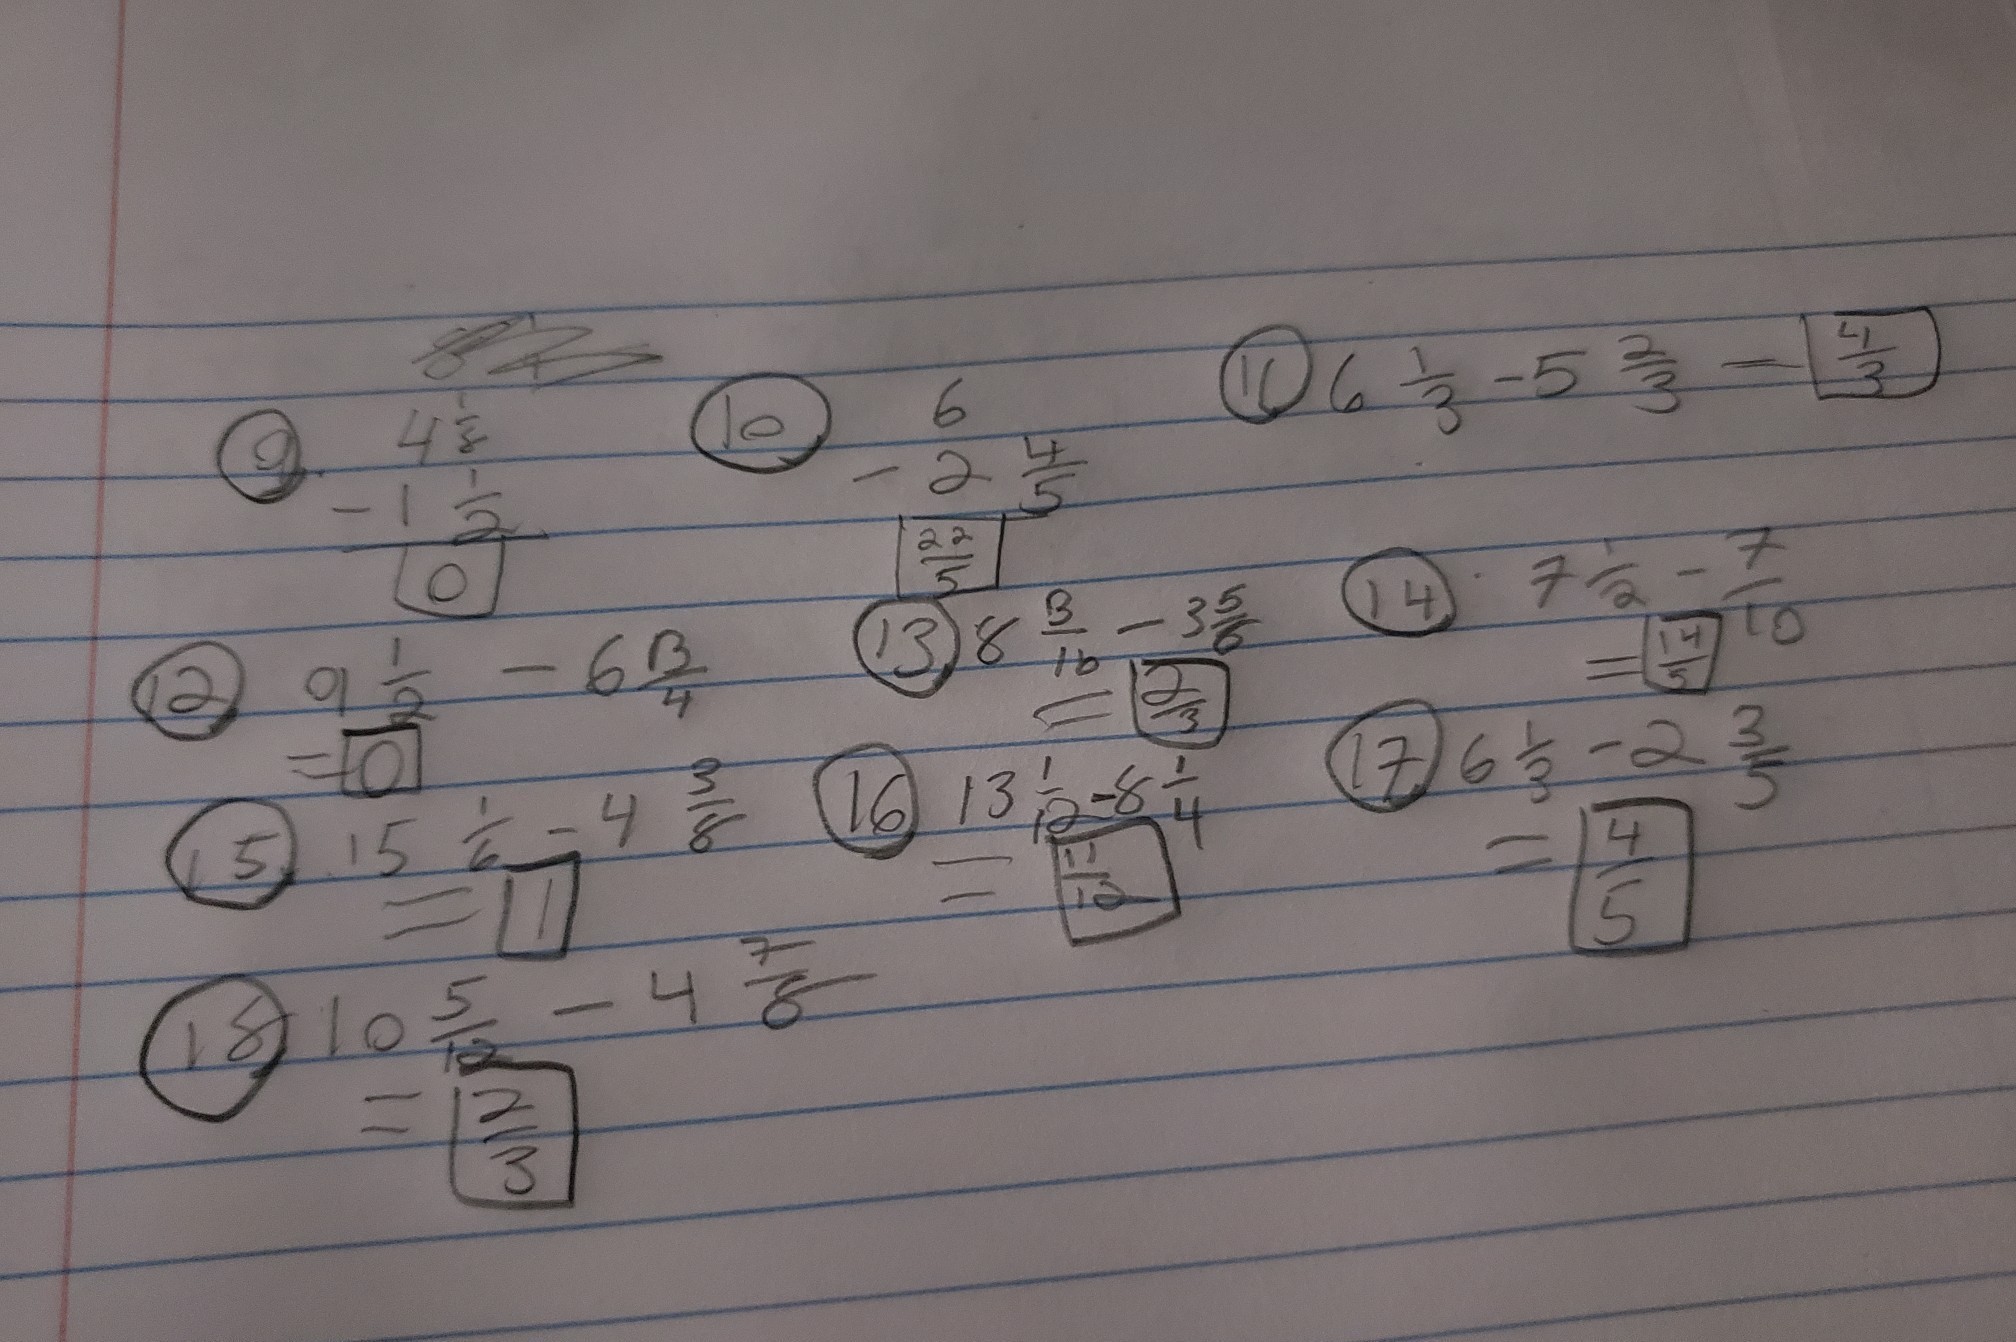 9. 4 1/8
- 1 1/2
0
10 6
- 2 4/5
22/5
11 6 1/3 - 5 2/3 = 4/3
12 9 1/2 - 6 3/4
= 0
13 8 3/10 - 3 5/6
= 2/3
14 7 1/2 - 7/10
= 14/5
15 15 1/6 - 4 3/8
= 1
16 13 1/12 - 8 1/4
= 11/12
17 6 1/3 - 2 3/5
= 4/5
18 10 5/12 - 4 7/8
= 2/3